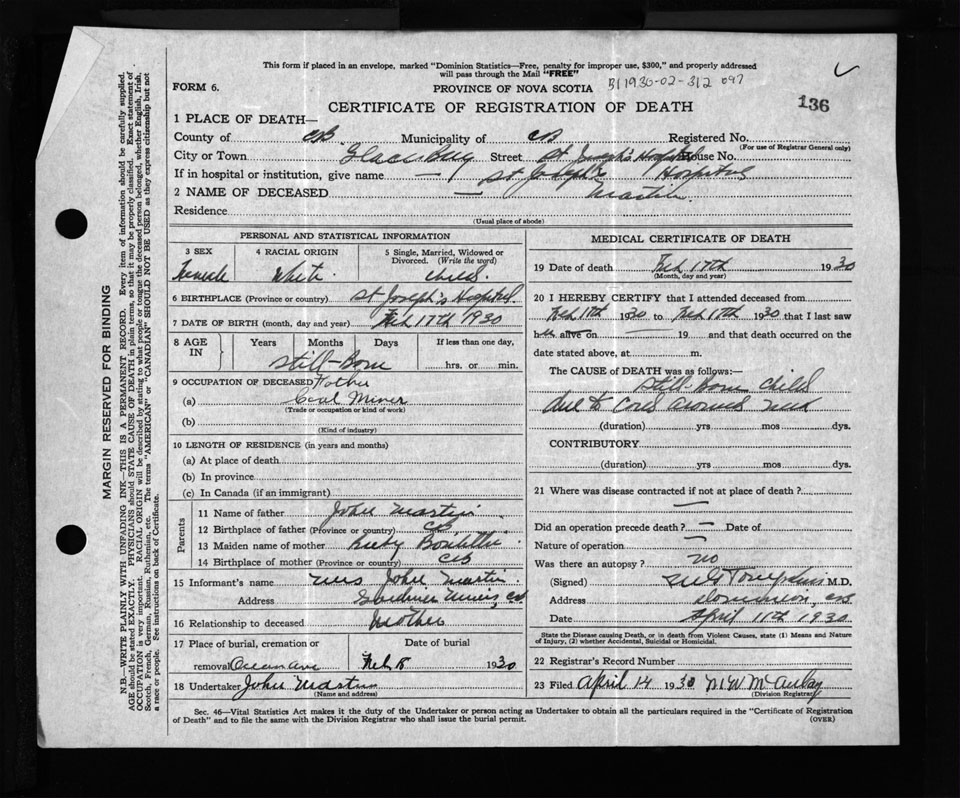 This form if placed in an envelope, marked "Dominion Statistics—Free, penalty for improper use, $300," and properly addressed
will pass through the Mail "FREE"
B1 1930-02-312 097
FORM 6.
PROVINCE OF NOVA SCOTIA
CERTIFICATE OF REGISTRATION OF DEATH
136
1 PLACE OF DEATH—
County of CB. Municipality of CB Registered No.
(For use of Registrar General only)
City or Town Glace Bay Street St Joseph's Hospital House No.
If in hospital or institution, give name — St Joseph's Hospital
2 NAME OF DECEASED — Martin.
Residence
(Usual place of abode)
PERSONAL AND STATISTICAL INFORMATION
3 SEX Female
4 RACIAL ORIGIN White
5 Single, Married, Widowed or Divorced. (Write the word) Child.
6 BIRTHPLACE (Province or country) St Joseph's Hospital
7 DATE OF BIRTH (month, day and year) Feb 17th 1930
8 AGE IN Years Months Days If less than one day,
Still-Born hrs. or min.
9 OCCUPATION OF DECEASED Father
(a) Coal Miner
(Trade or occupation or kind of work)
(b)
(Kind of industry)
10 LENGTH OF RESIDENCE (in years and months)
(a) At place of death
(b) In province
(c) In Canada (if an immigrant)
Parents
11 Name of father John Martin
12 Birthplace of father (Province or country) CB
13 Maiden name of mother
14 Birthplace of mother (Province or country) CB
15 Informant's name Mrs John Martin
Address Gardiner Mines, CB
16 Relationship to deceased Mother
17 Place of burial, cremation or Date of burial
removal Feb 18 1930
18 Undertaker John Martin
(Name and address)
MEDICAL CERTIFICATE OF DEATH
19 Date of death Feb 17th 1930
(Month, day and year)
20 I HEREBY CERTIFY that I attended deceased from
Feb 17th 1930 to Feb 17th 1930 that I last saw
h alive on 19 and that death occurred on the
date stated above, at m.
The CAUSE of DEATH was as follows:—
Still-Born child
due to cord around neck
(duration) yrs mos dys.
CONTRIBUTORY
(duration) yrs mos dys.
21 Where was disease contracted if not at place of death?
—
Did an operation precede death? — Date of
Nature of operation —
Was there an autopsy? no
(Signed) Tompkins M.D.
Address Dominion, CB
Date April 11th 1930
State the Disease causing Death, or in death from Violent Causes, state (1) Means and Nature
of Injury, (2) whether Accidental, Suicidal or Homicidal.
22 Registrar's Record Number
23 Filed April 14 1930 M W McAulay
(Division Registrar)
Sec. 46—Vital Statistics Act makes it the duty of the Undertaker or person acting as Undertaker to obtain all the particulars required in the "Certificate of Registration
of Death" and to file the same with the Division Registrar who shall issue the burial permit.
(OVER)
MARGIN RESERVED FOR BINDING
N.B.—WRITE PLAINLY WITH UNFADING INK—THIS IS A PERMANENT RECORD. Every item of information should be carefully supplied.
AGE should be stated EXACTLY. PHYSICIANS should STATE CAUSE OF DEATH in plain terms, so that it may be properly classified. Exact statement of
OCCUPATION is very important. RACIAL ORIGIN will be described by stating to what people or tongue the deceased person belonged, whether English, Irish,
Scotch, French, German, Russian, Ruthenian, etc. The terms "AMERICAN" or "CANADIAN" SHOULD NOT BE USED as they express citizenship but not
a race or people. See instructions on back of Certificate.